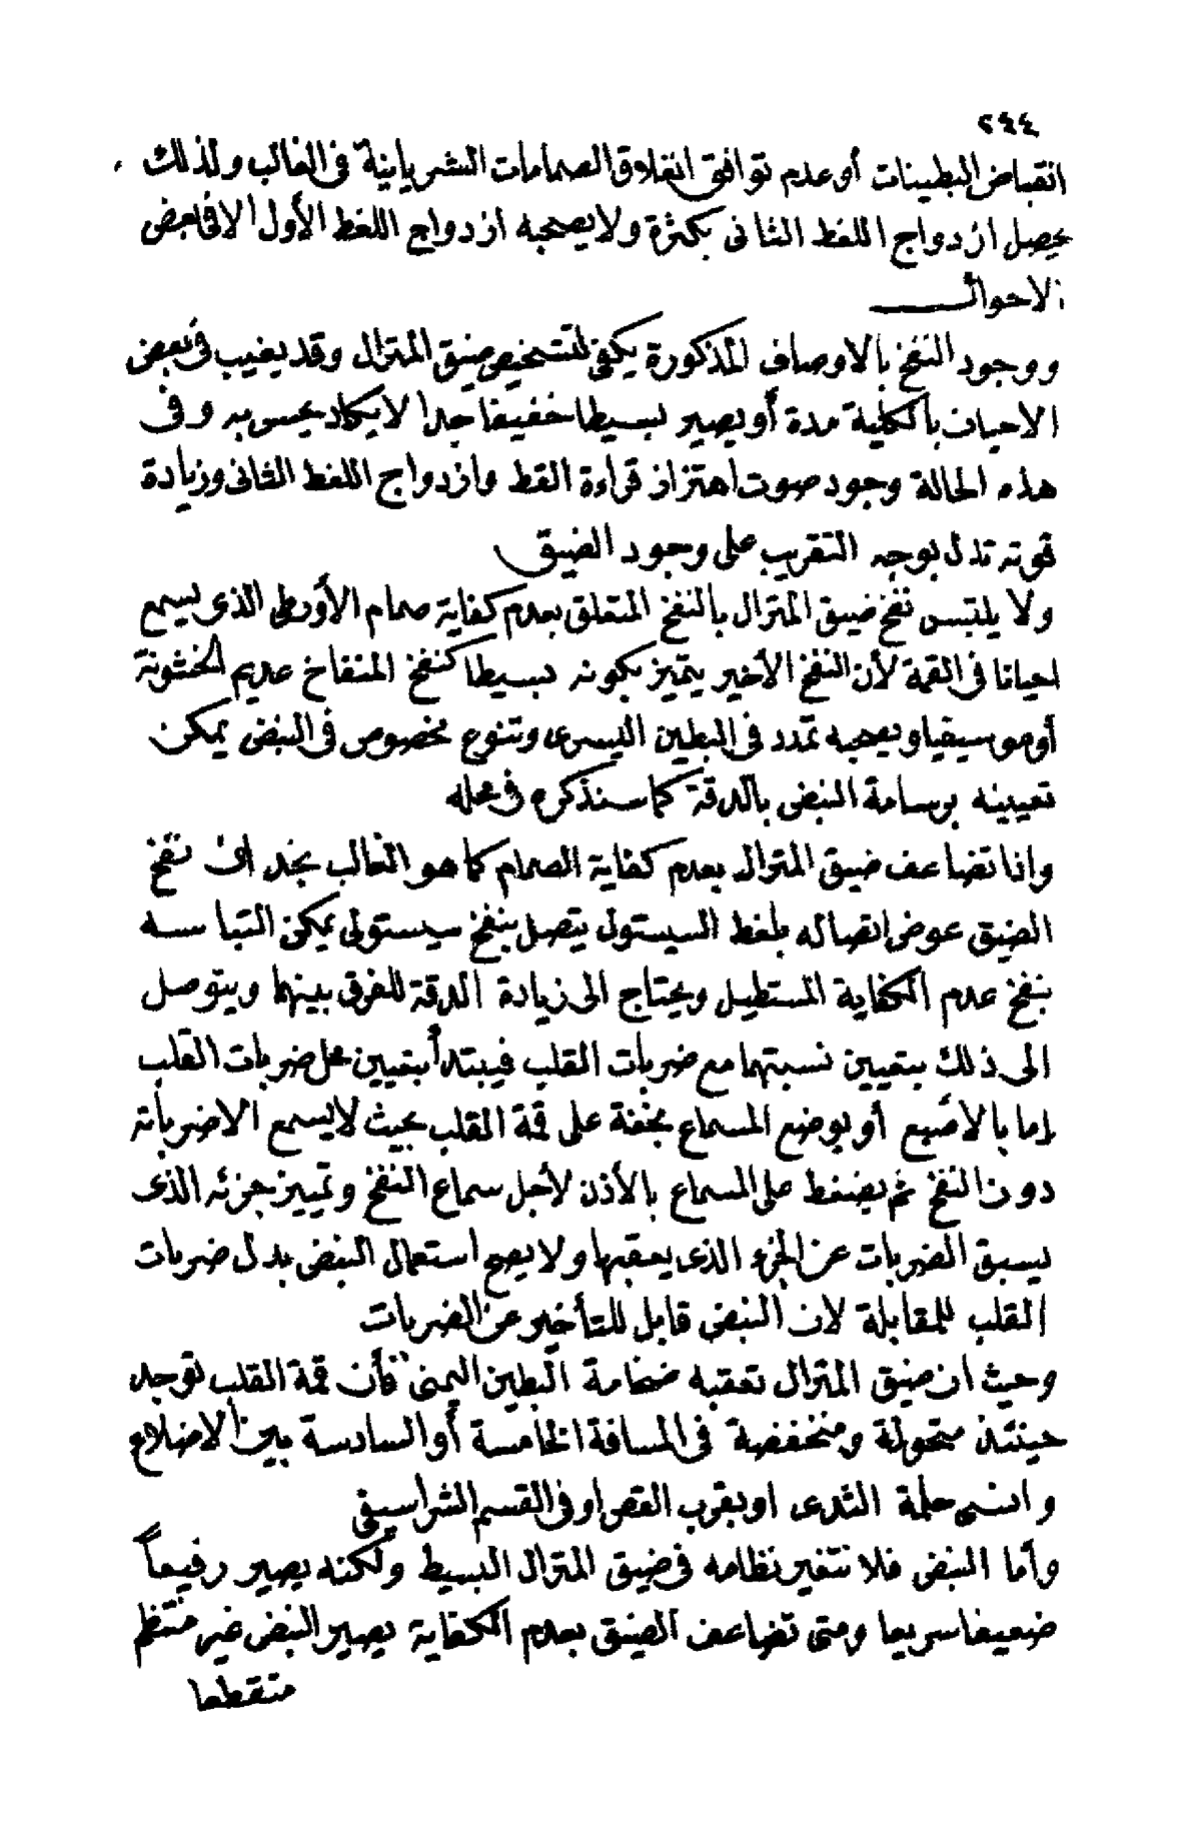 ٢٤٤
انقباض البطينات أو عدم توافق انغلاق الصمامات الشريانية فى الغالب ولذلك
يحصل ازدواج اللغط الثانى بكثرة ولا يصحبه ازدواج اللغط الأول الا فى بعض
الاحوال
ووجود النفخ بالاوصاف المذكورة يكفى لتشخيص ضيق المترال وقد يغيب فى بعض
الاحيان بالكلية مدة أو يصير بسيطا خفيفا جدا لا يكاد يحس به وفى
هذه الحالة وجود صوت اهتزاز قراءة القط وازدواج اللغط الثانى وزيادة
قوته تدل بوجه التقريب على وجود الضيق
ولا يلتبس نفخ ضيق المترال بالنفخ المتعلق بعدم كفاية صمام الأورطى الذى يسمع
احيانا فى القمة لأن النفخ الأخير يتميز بكونه بسيطا كنفخ المنفاخ عديم الخشونة
أو موسيقيا ويصحبه تمدد فى البطين اليسرى وتنوع مخصوص فى النبض يمكن
تعيينه برسامة النبض بالدقة كما سنذكره فى محله
واذا تضاعف ضيق المترال بعدم كفاية الصمام كما هو الغالب نجد ان نفخ
الضيق عوض اتصاله بلغط السيستول يتصل بنفخ سيستولى يمكن التباسه
بنفخ عدم الكفاية المستطيل ويحتاج الى زيادة الدقة للفرق بينهما ويتوصل
الى ذلك بتعيين نسبتهما مع ضربات القلب فيبتدأ بتعيين محل ضربات القلب
إما بالاصبع أو بوضع المسماع بخفة على قمة القلب بحيث لا يسمع الا ضرباته
دون النفخ ثم يضغط على المسماع بالأذن لأجل سماع النفخ وتمييز جزئه الذى
يسبق الضربات عن الجزء الذى يعقبها ولا يصح استعمال النبض بدل ضربات
القلب للمقابلة لان النبض قابل للتأخير عن الضربات
وحيث ان ضيق المترال تعقبه ضخامة البطين اليمنى فأن قمة القلب توجد
حينئذ متحولة ومنخفضة فى المسافة الخامسة أو السادسة بين الاضلاع
وانسى حلمة الثدى او بقرب القص او فى القسم الشراسيفى
وأما النبض فلا تتغير نظامه فى ضيق المترال البسيط ولكنه يصير رفيعاً
ضعيفا سريعا ومتى تضاعف الضيق بعدم الكفاية يصير النبض غير منتظم
متقطعا